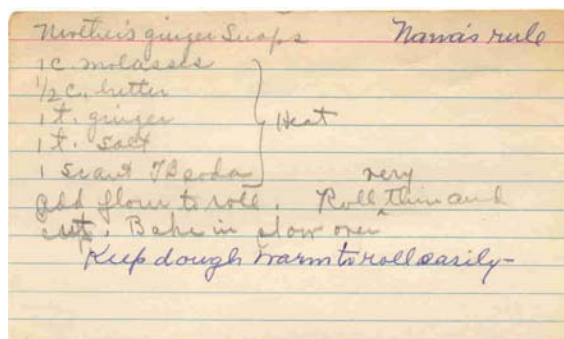 Mother's ginger Snaps Nana's rule
1 c. molasses
1/2 c. butter
1 t. ginger
1 t. salt
1 scant TB soda
Heat
add flour to roll. Roll very thin and
cut. Bake in slow oven
Keep dough warm to roll easily -